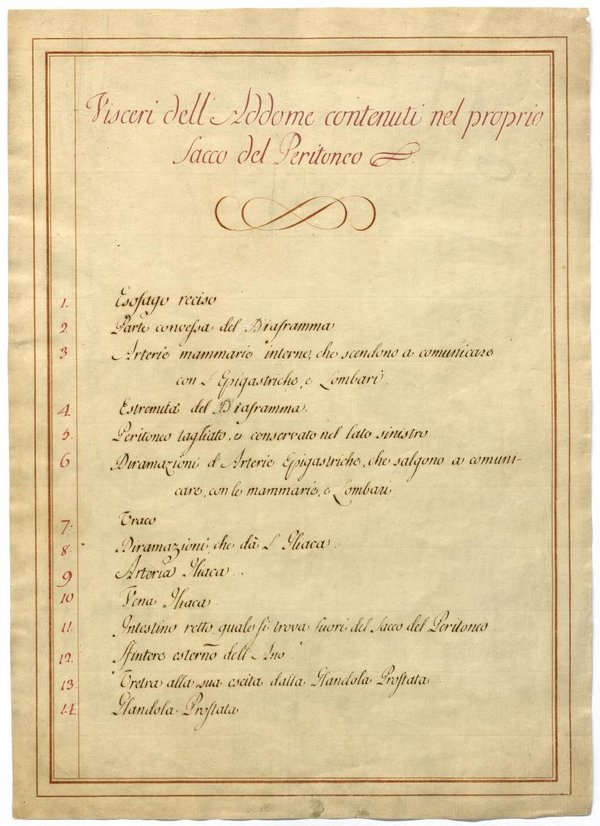 Visceri dell'Addome contenuti nel proprio
Sacco del Peritoneo
1. Esofago reciso
2. Parte convessa del Diaframma
3 Arterie mammarie interne, che scendono a comunicare
con l'Epigastriche, e Lombari.
4. Estremità del Diaframma.
5. Peritoneo tagliato, e conservato nel lato sinistro.
6 Diramazioni d'Arterie Epigastriche, che salgono a comuni-
care, con le mammarie, e Lombari
7. Uraco
8. Diramazioni, che dà l'Iliaca.
9 Arteria Iliaca.
10 Vena Iliaca
11. Intestino retto, quale si trova fuori del Sacco del Peritoneo
12. Sfintere esterno dell'Ano
13. Uretra alla sua escita dalla Glandola Prostata.
14 Glandola Prostata